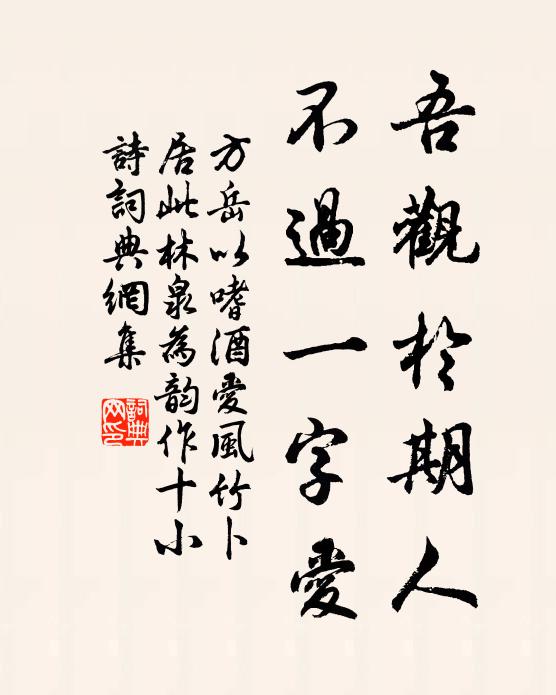 吾觀於期人
不過一字愛
方岳以嗜酒愛風竹卜
居此林泉為韵作十小
詩詞典網集
詞典
网印